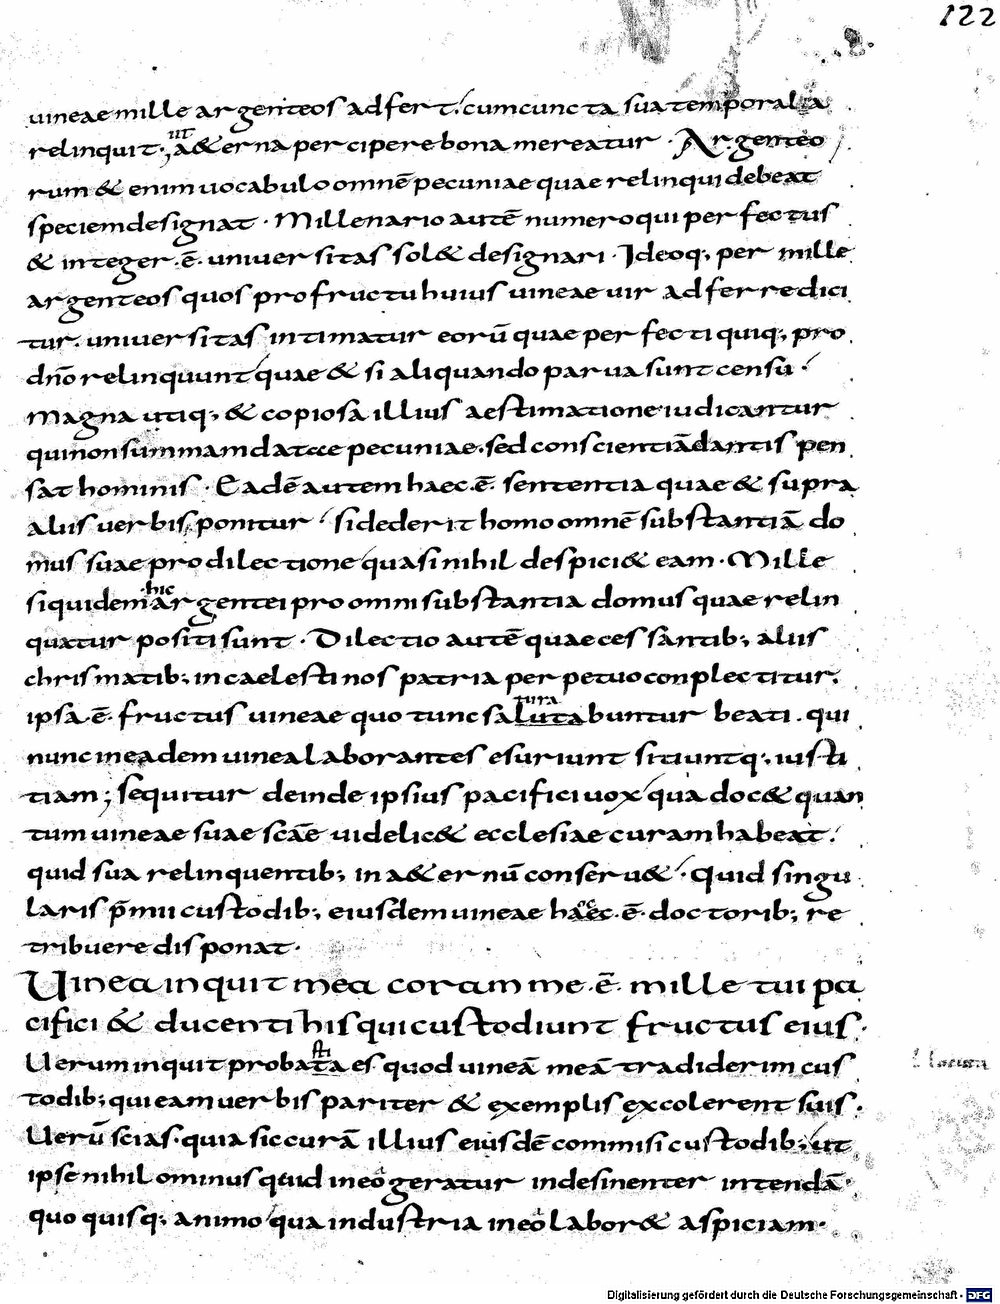 122
uineae mille argenteos adfert. cum cuncta sua temporalia
relinquit; ut a&erna percipere bona mereatur · Argenteo
rum & enim uocabulo omnē pecuniae quae relinqui debeat
speciem designat · Millenario autē numero qui perfectus
& integer · ē · uniuersitas sol& designari · Ideoq; per mille
argenteos quos pro fructu huius uineae uir adferre dici
tur. uniuersitas intimatur eorū quae perfecti quiq; pro
dn̄o relinquunt quae & si aliquando parua sunt censu
magna utiq; & copiosa illius aestimatione iudicantur
qui non summam datae pecuniae. sed conscientiā dantis pen
sat hominis · Eadē autem haec · ē · sententia quae & supra
aliis uerbis ponitur si dederit homo omnē substantiā do
mus suae pro dilectione quasi nihil despici& eam · Mille
siquidem hic argentei pro omni substantia domus quae relin
quatur positi sunt · Dilectio autē quae cessantib; aliis
chrismatib; in caelesti nos patria perpetuo conplectitur.
ipsa · ē · fructus uineae quo tunc saluta tura buntur beati. qui
nunc in eadem uinea laborantes esuriunt sitiuntq; iusti
tiam; sequitur deinde ipsius pacifici uox qua doc& quan
tum uineae suae scāe uidelic& ecclesiae curam habeat.
quid sua relinquentib; in a&ernū conseru& · Quid singu
laris p̄mii custodib; eiusdem uineae haec · ē · doctorib; re
tribuere disponat ·
Uinea inquit mea coram me · ē · mille tui pa
cifici & ducenti his qui custodiunt fructus eius ·
Uerum inquit probata sti es quod uineā meā tradiderim cus
todib; qui eam uerbis pariter & exemplis excolerent suis ·
Uerū scias · quia sic curā illius eiusdē commisi custodib; ut
ipse nihilominus quid in eo geratur indesinenter intendā ·
quo quisq; animo qua industria in eo labor& aspiciam ·
Digitalisierung gefördert durch die Deutsche Forschungsgemeinschaft · DFG